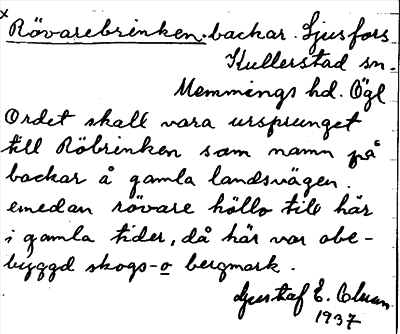 x
Rövarebrinken. backar. Ljusfors
Kullerstad sn.
Memmings hd. Ögl
Ordet skall vara ursprunget
till Röbrinken som namn på
backar å gamla landsvägen.
emedan rövare höllo till här
i gamla tider, då här var obe-
byggd skogs- o bergmark.
Gustaf E.
1937